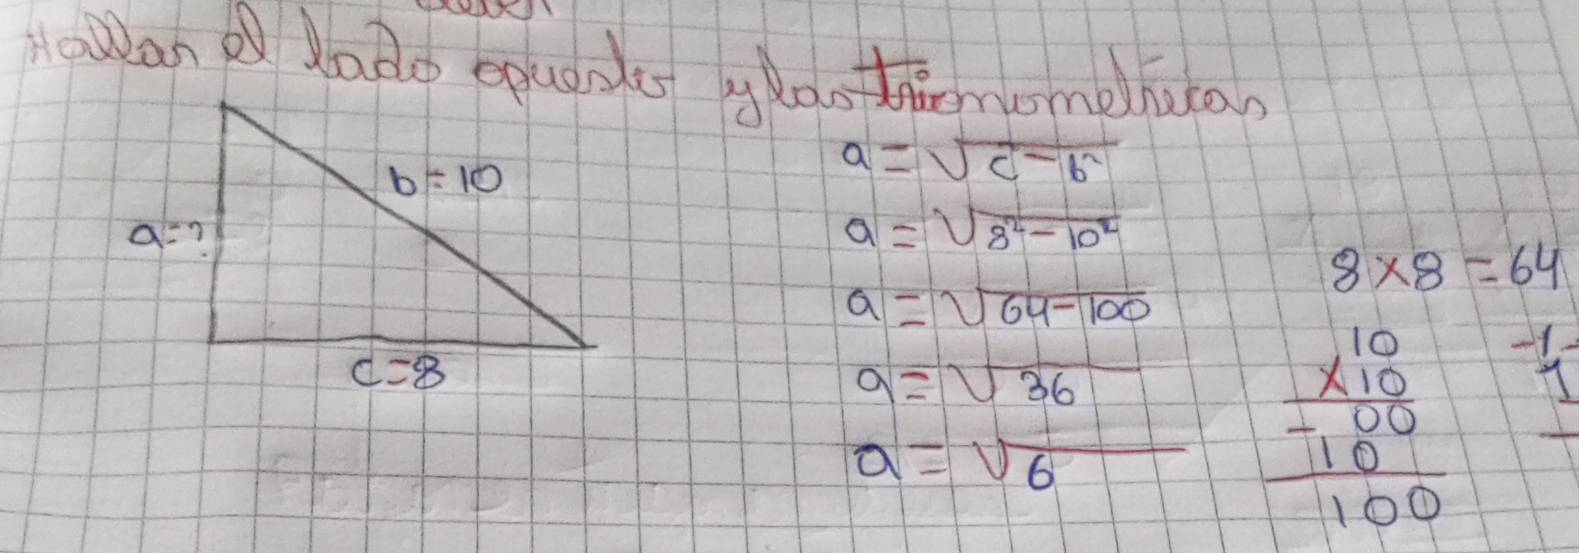 Hallar el lado opuesto y las trigonometricas
b=10
a=?
c=8
a = √c²-b²
a = √8²-10²
a = √64-100
a = √36
a = √6
8 x 8 = 64
10
x10
00
10
100